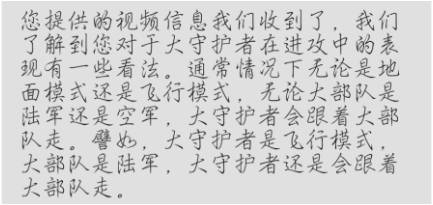 您提供的视频信息我们收到了，我们
了解到您对于大守护者在进攻中的表
现有一些看法。通常情况下无论是地
面模式还是飞行模式，无论大部队是
陆军还是空军，大守护者会跟着大部
队走。譬如，大守护者是飞行模式，
大部队是陆军，大守护者还是会跟着
大部队走。